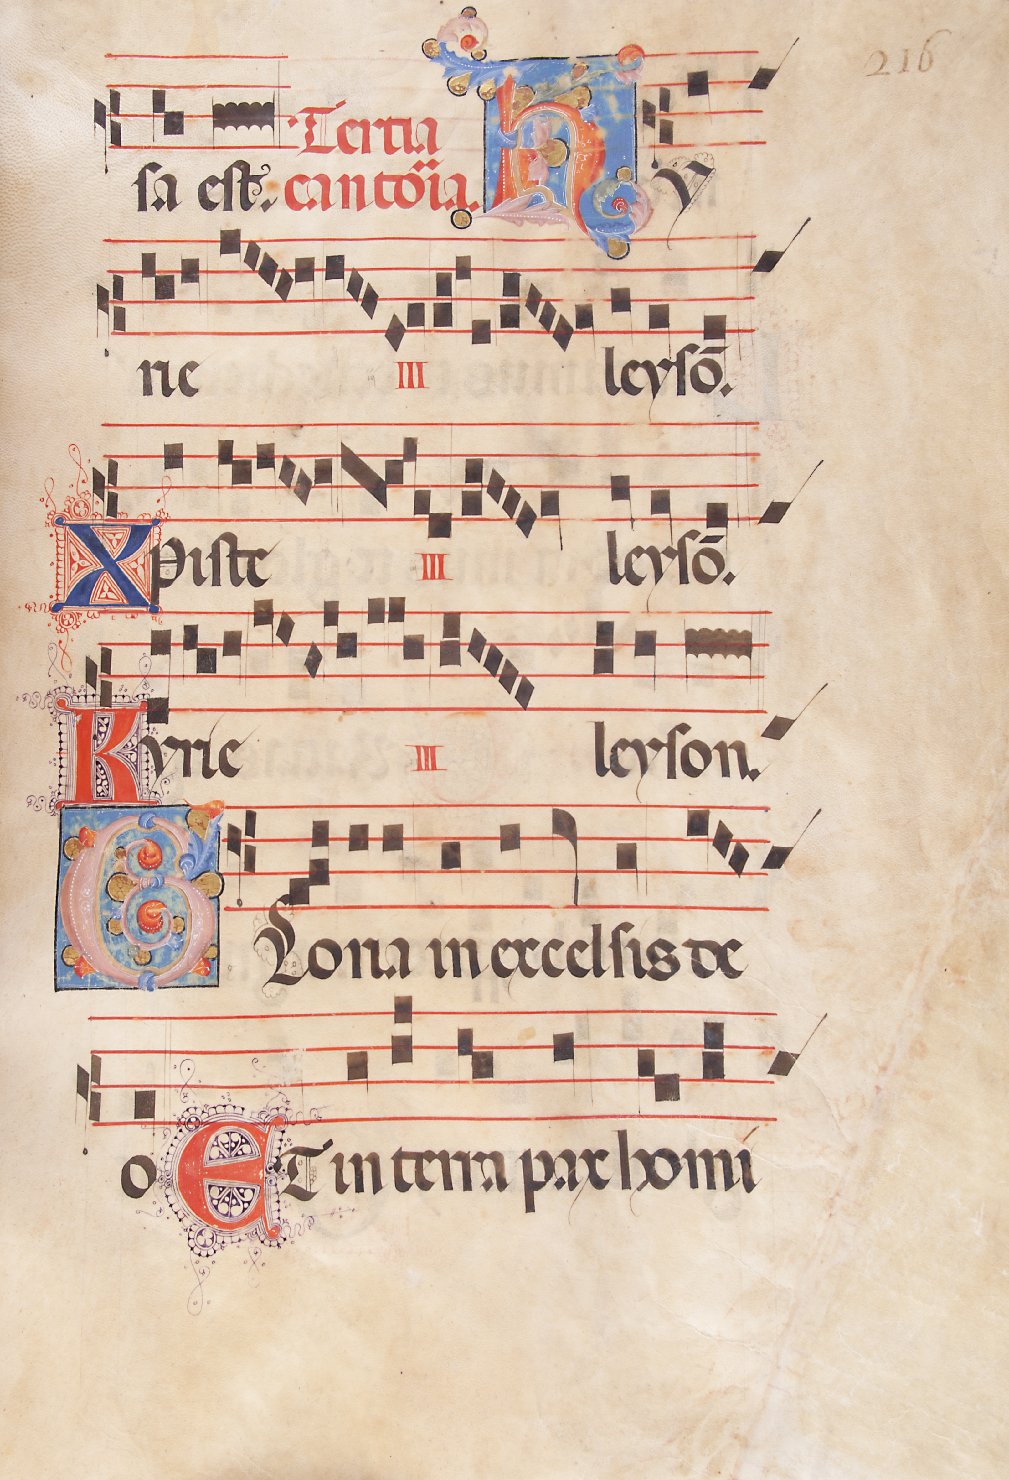 216
Tertia
sa est. cantoria. Ky
rie III leysō.
Xpiste III leysō.
Kyrie III leyson.
Gloria in excelsis de
o ET in terra pax homi